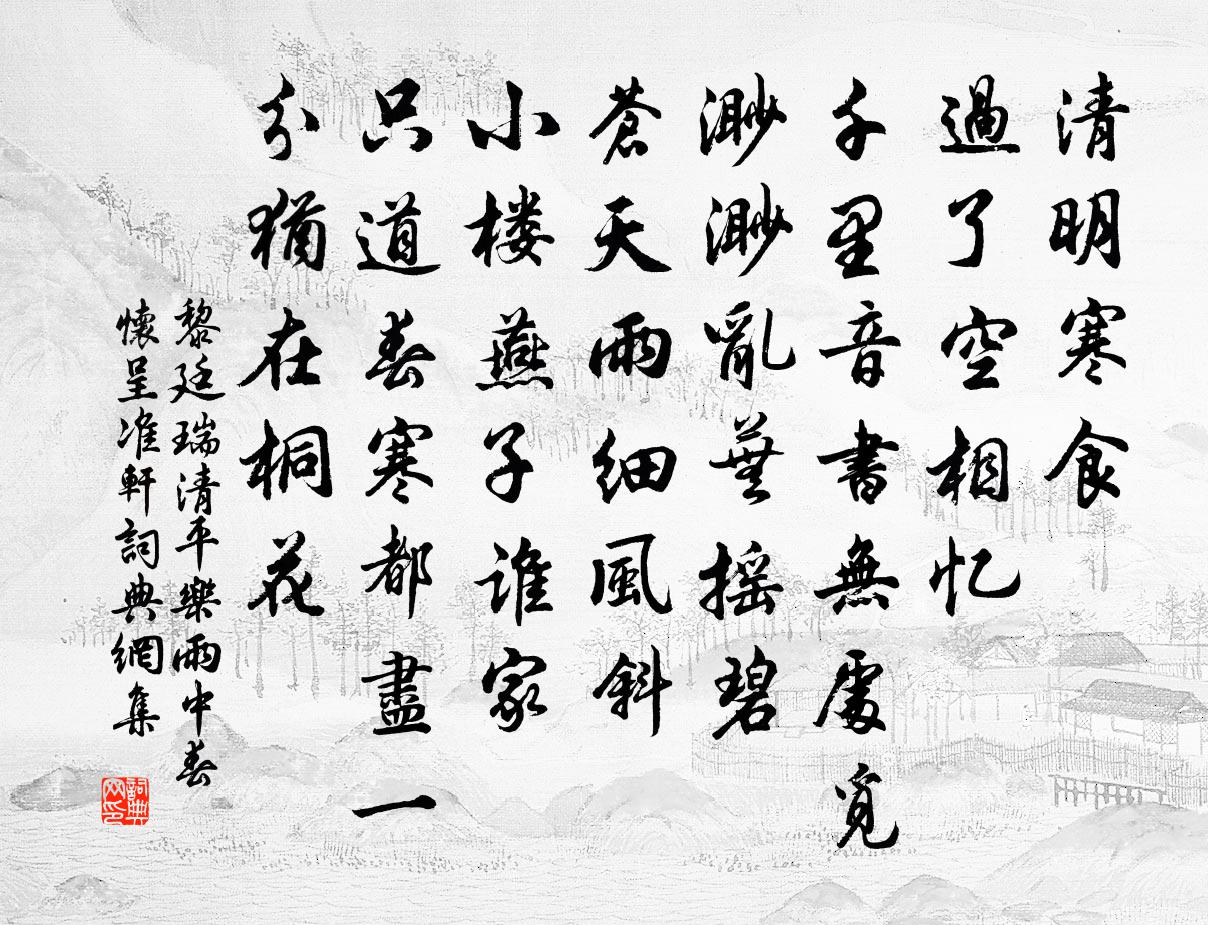 清明寒食
過了空相忆
千里音書無處覓
渺渺亂蕪摇碧
蒼天雨細風斜
小楼燕子谁家
只道春寒都盡一
分猶在桐花
黎廷瑞清平樂雨中春
懷呈准軒詞典網集
詞典網印